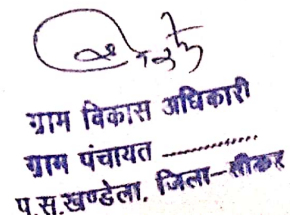 ग्राम विकास अधिकारी
ग्राम पंचायत ..............
प.स.खण्डेला, जिला-सीकर